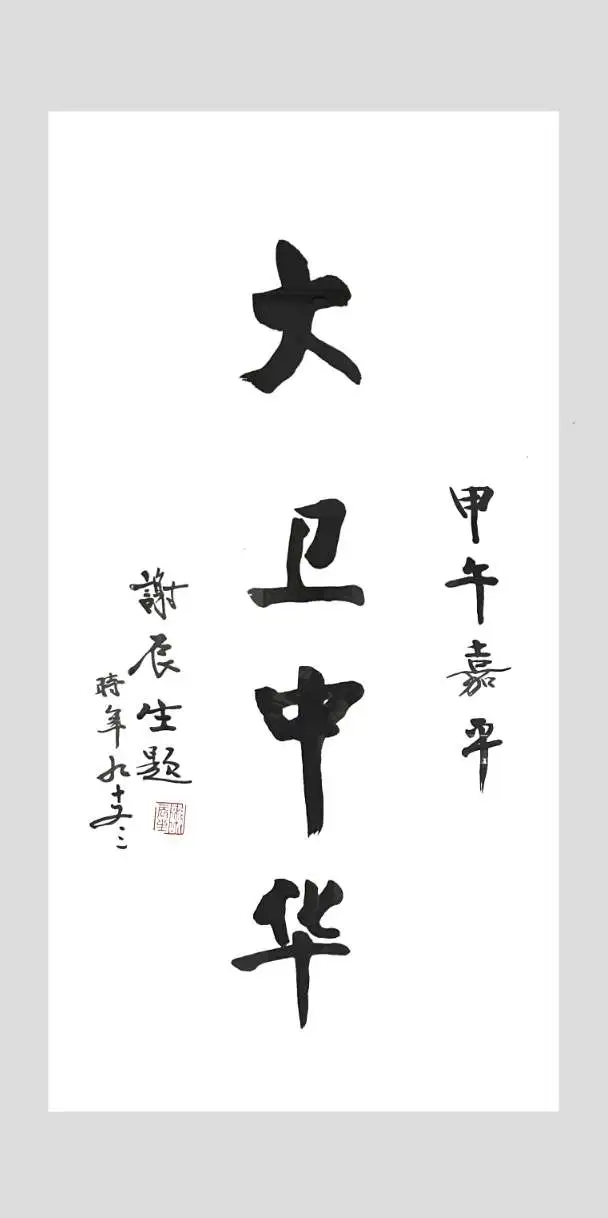 甲午嘉平
大卫中华
謝辰生题
時年九十又三